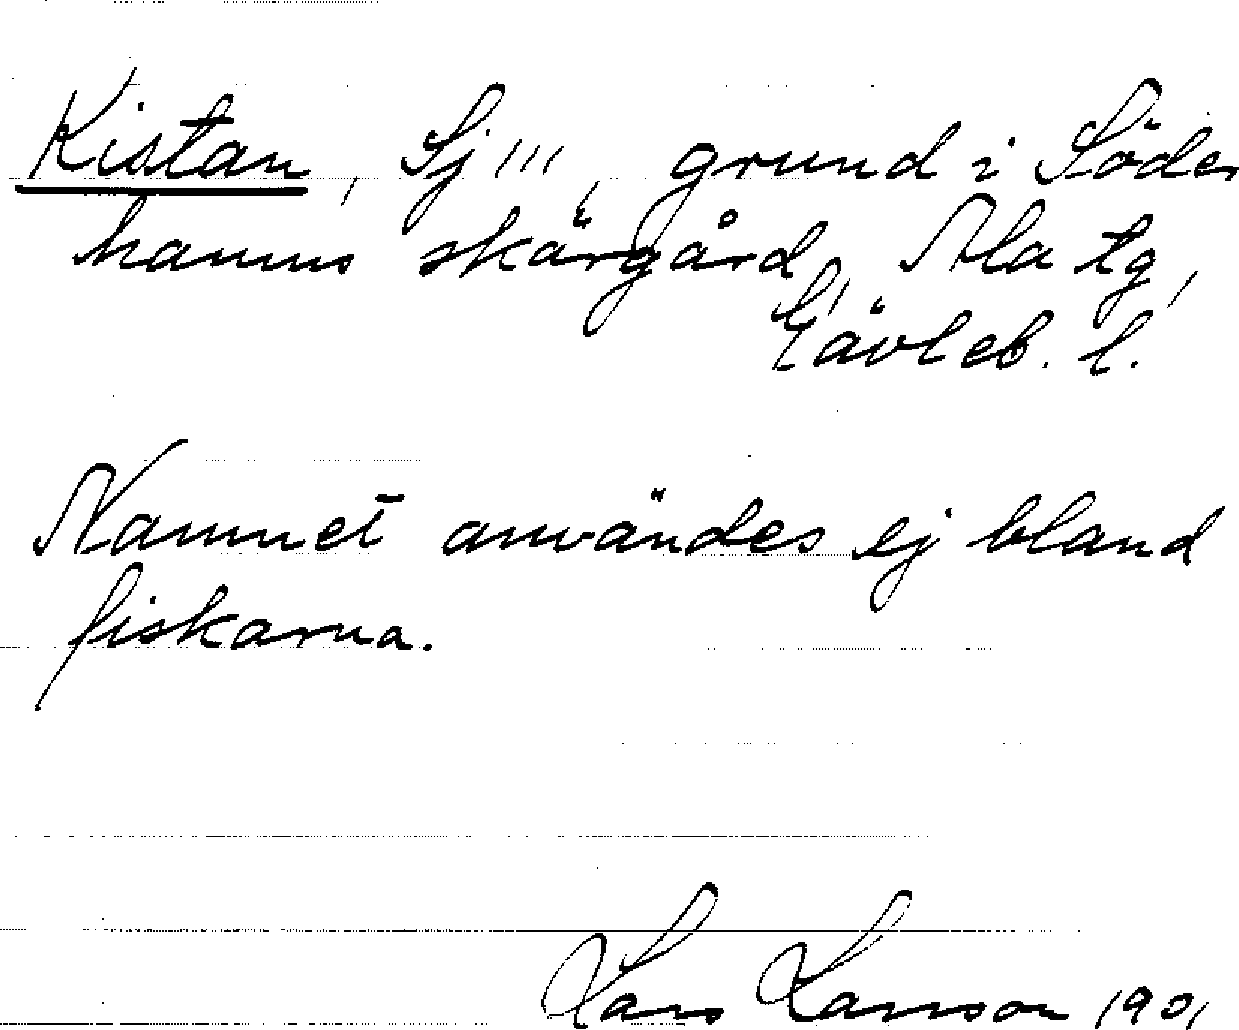 Kistan, Sj ''', grund i Söder
hamns skärgård, Ala tg,
Gävleb. l.
Namnet användes ej bland
fiskarna.
Lars Larsson 1901